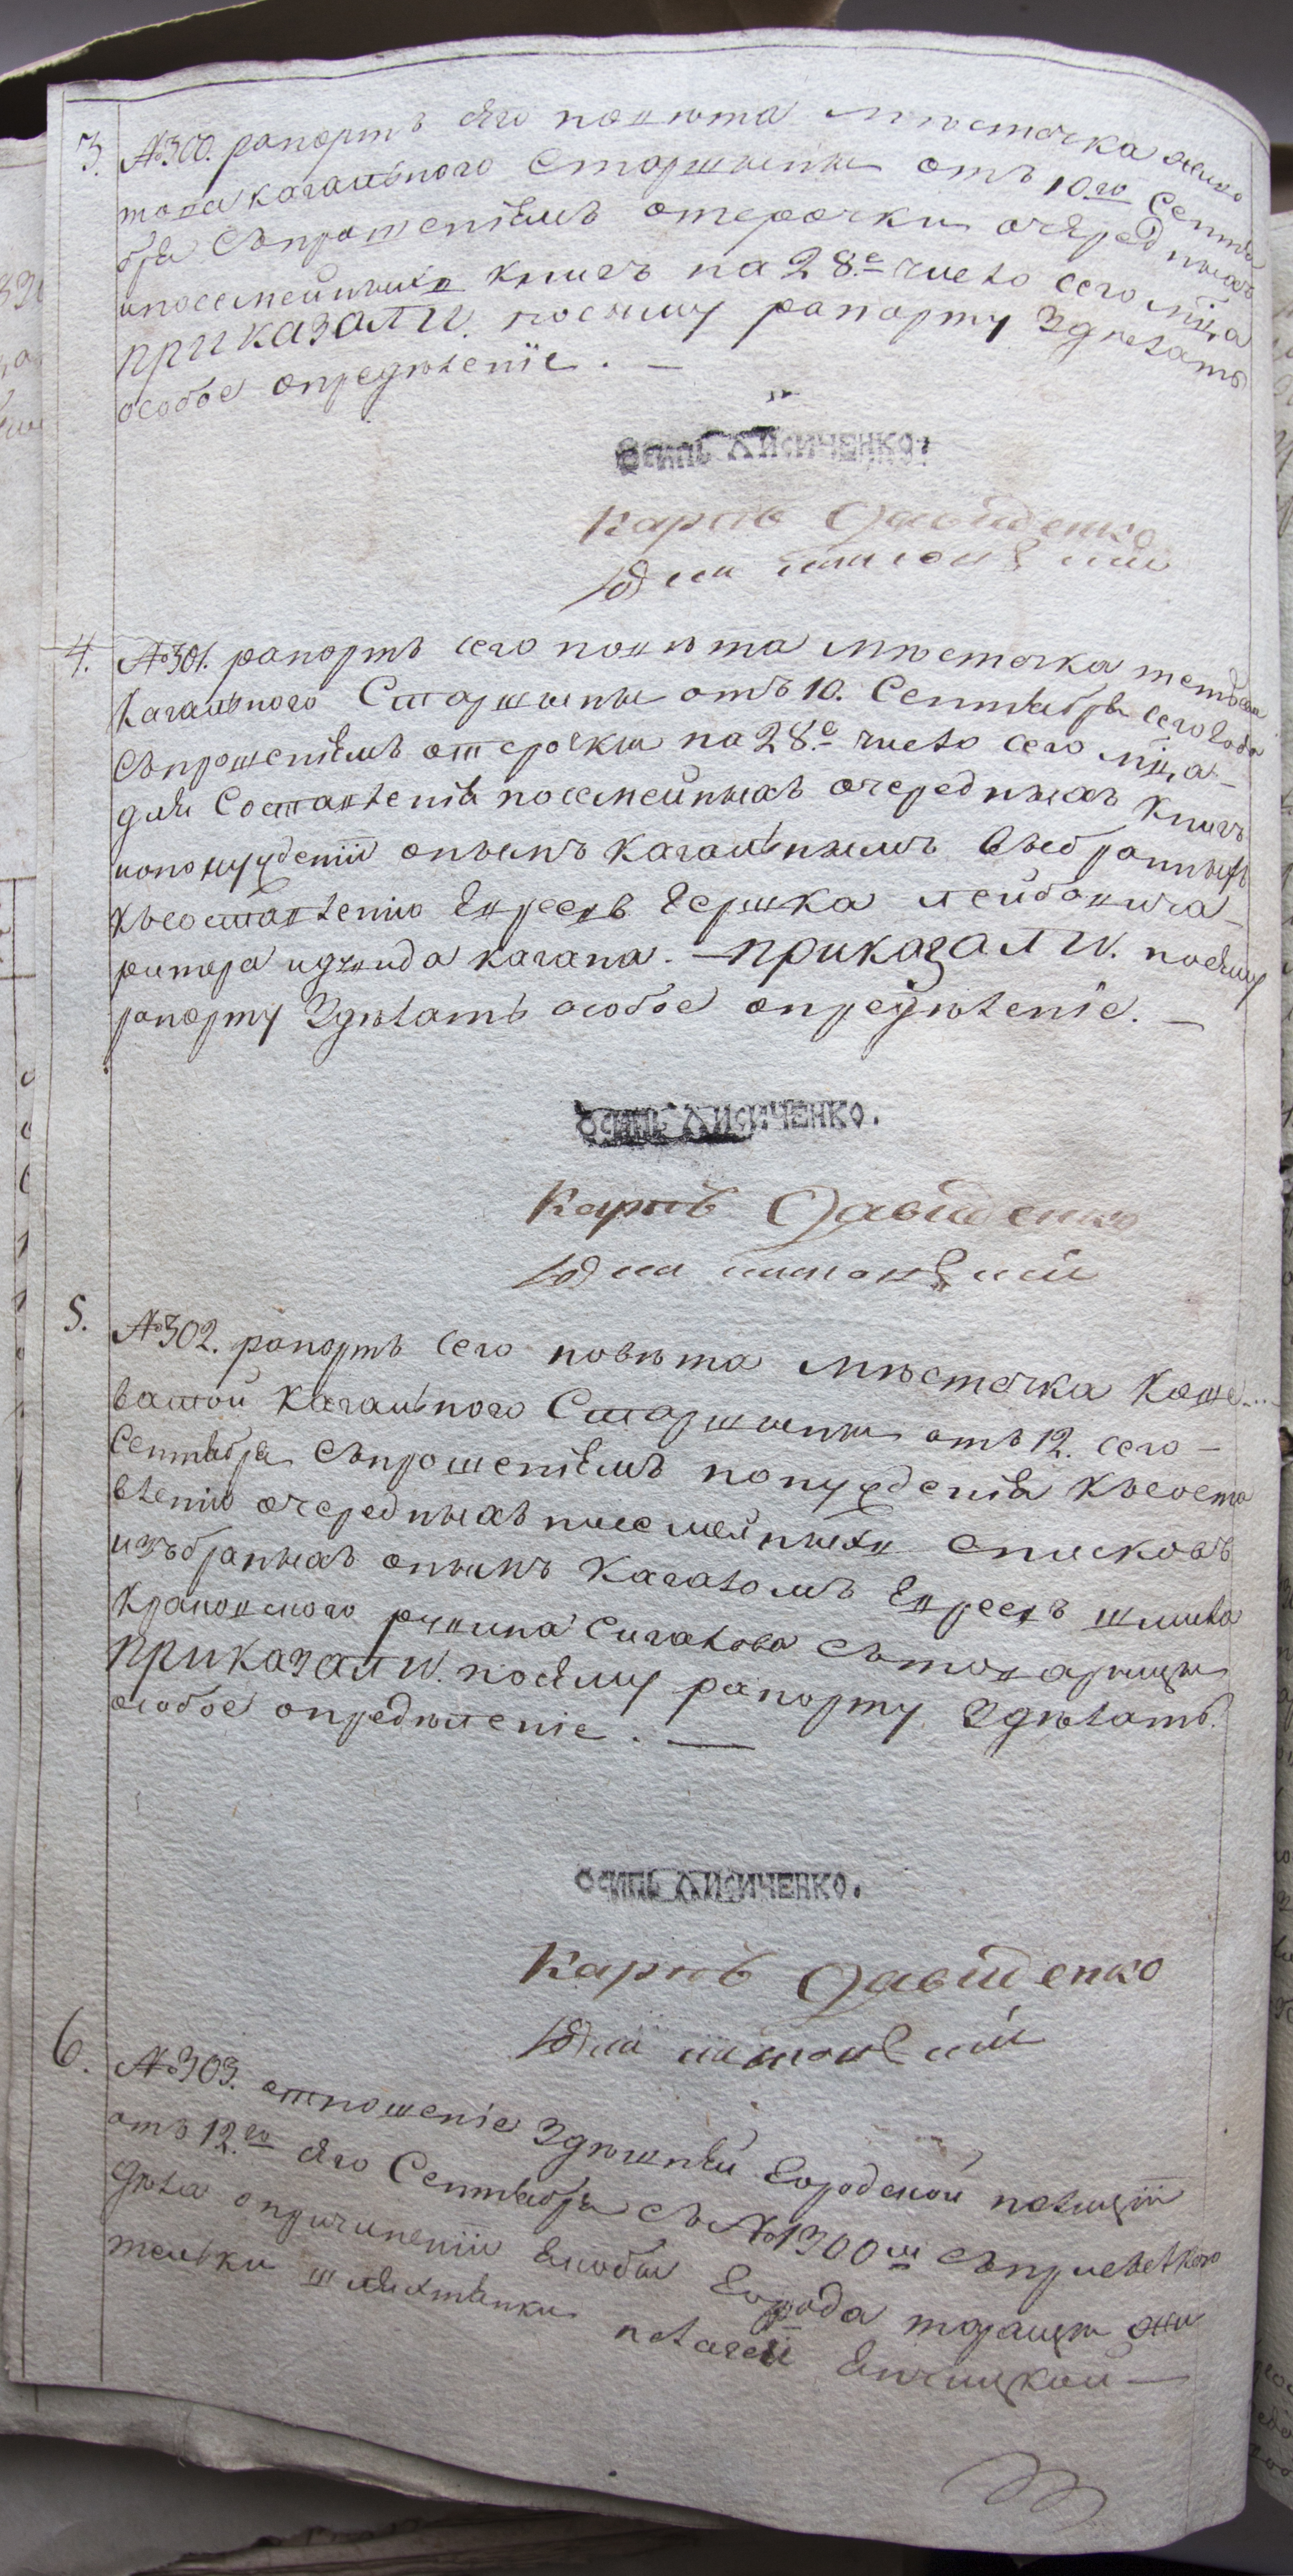 3. №300. рапортъ сего повѣта мѣстечка Живо
това кагального Старшины отъ 10го Септя
бря Съпрошеніемъ отсрочки очередныхъ
ипосемейныхъ книгъ на 28.е число сего мца
приказали. посему рапорту Здѣлать
особое опредѣленіе. —
Осипъ Лисиченко.
Карпъ Давиденко
4. №301. рапортъ сего повѣта мѣстечка тетіева
Кагального Старшины отъ 10. Септября сего года
Съпрошеніемъ отсрочки на 28.е число сего мца —
для Составленія посемейныхъ очередныхъ книгъ
ипонужденіи онымъ кагальнымъ выбранныхъ
ксоставленію Евреевъ Берка лейбовича —
ритера идувида кагана. — приказали. посему
рапорту Здѣлать особое опредѣленіе. —
Осипъ Лисиченко.
Карпъ Давиденко
5. №302. рапортъ сего повѣта мѣстечка Коше...
ватой Кагального Старшины отъ 12. сего —
Септября Съпрошеніемъ понужденія Ксоста
вленію очередныхъ посемейныхъ списковъ
избраныхъ онымъ Кагаломъ Евреевъ шмила
Крановского рувина Сигалова Стоварищи
приказали. посему рапорту Здѣлать
особое опредѣленіе. —
Осипъ Лисиченко.
Карпъ Давиденко
6. №303. отношеніе Здѣшней Городской полиціи
отъ 12.го сего Септября съ №1300м
дѣла опричиненіи Злобы Города таращи жи
тельки шляхтянки